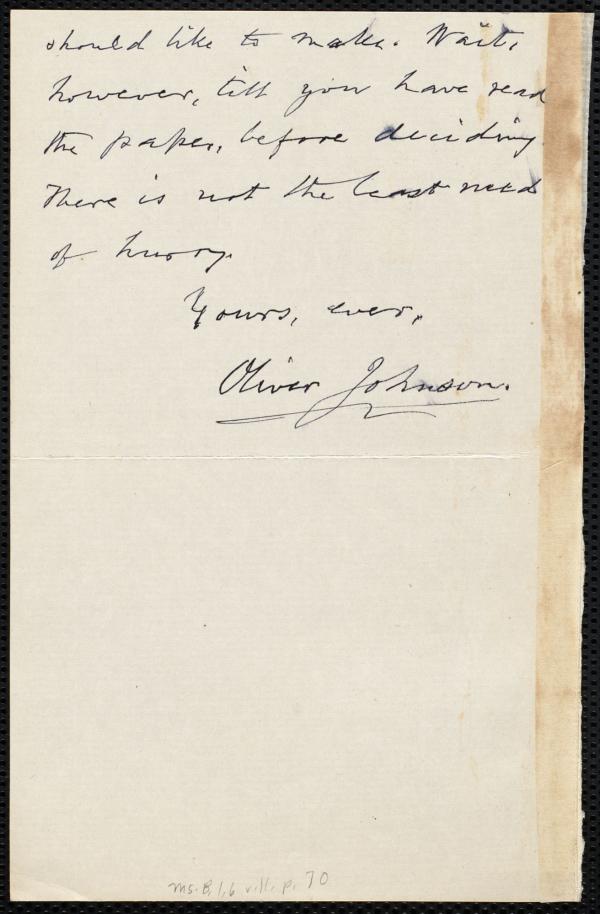 should like to make. Wait,
however, till you have read
the paper, before deciding.
There is not the least need
of hurry.
Yours, ever,
Oliver Johnson.
Ms. B. 1. 6 v. 11, p. 70